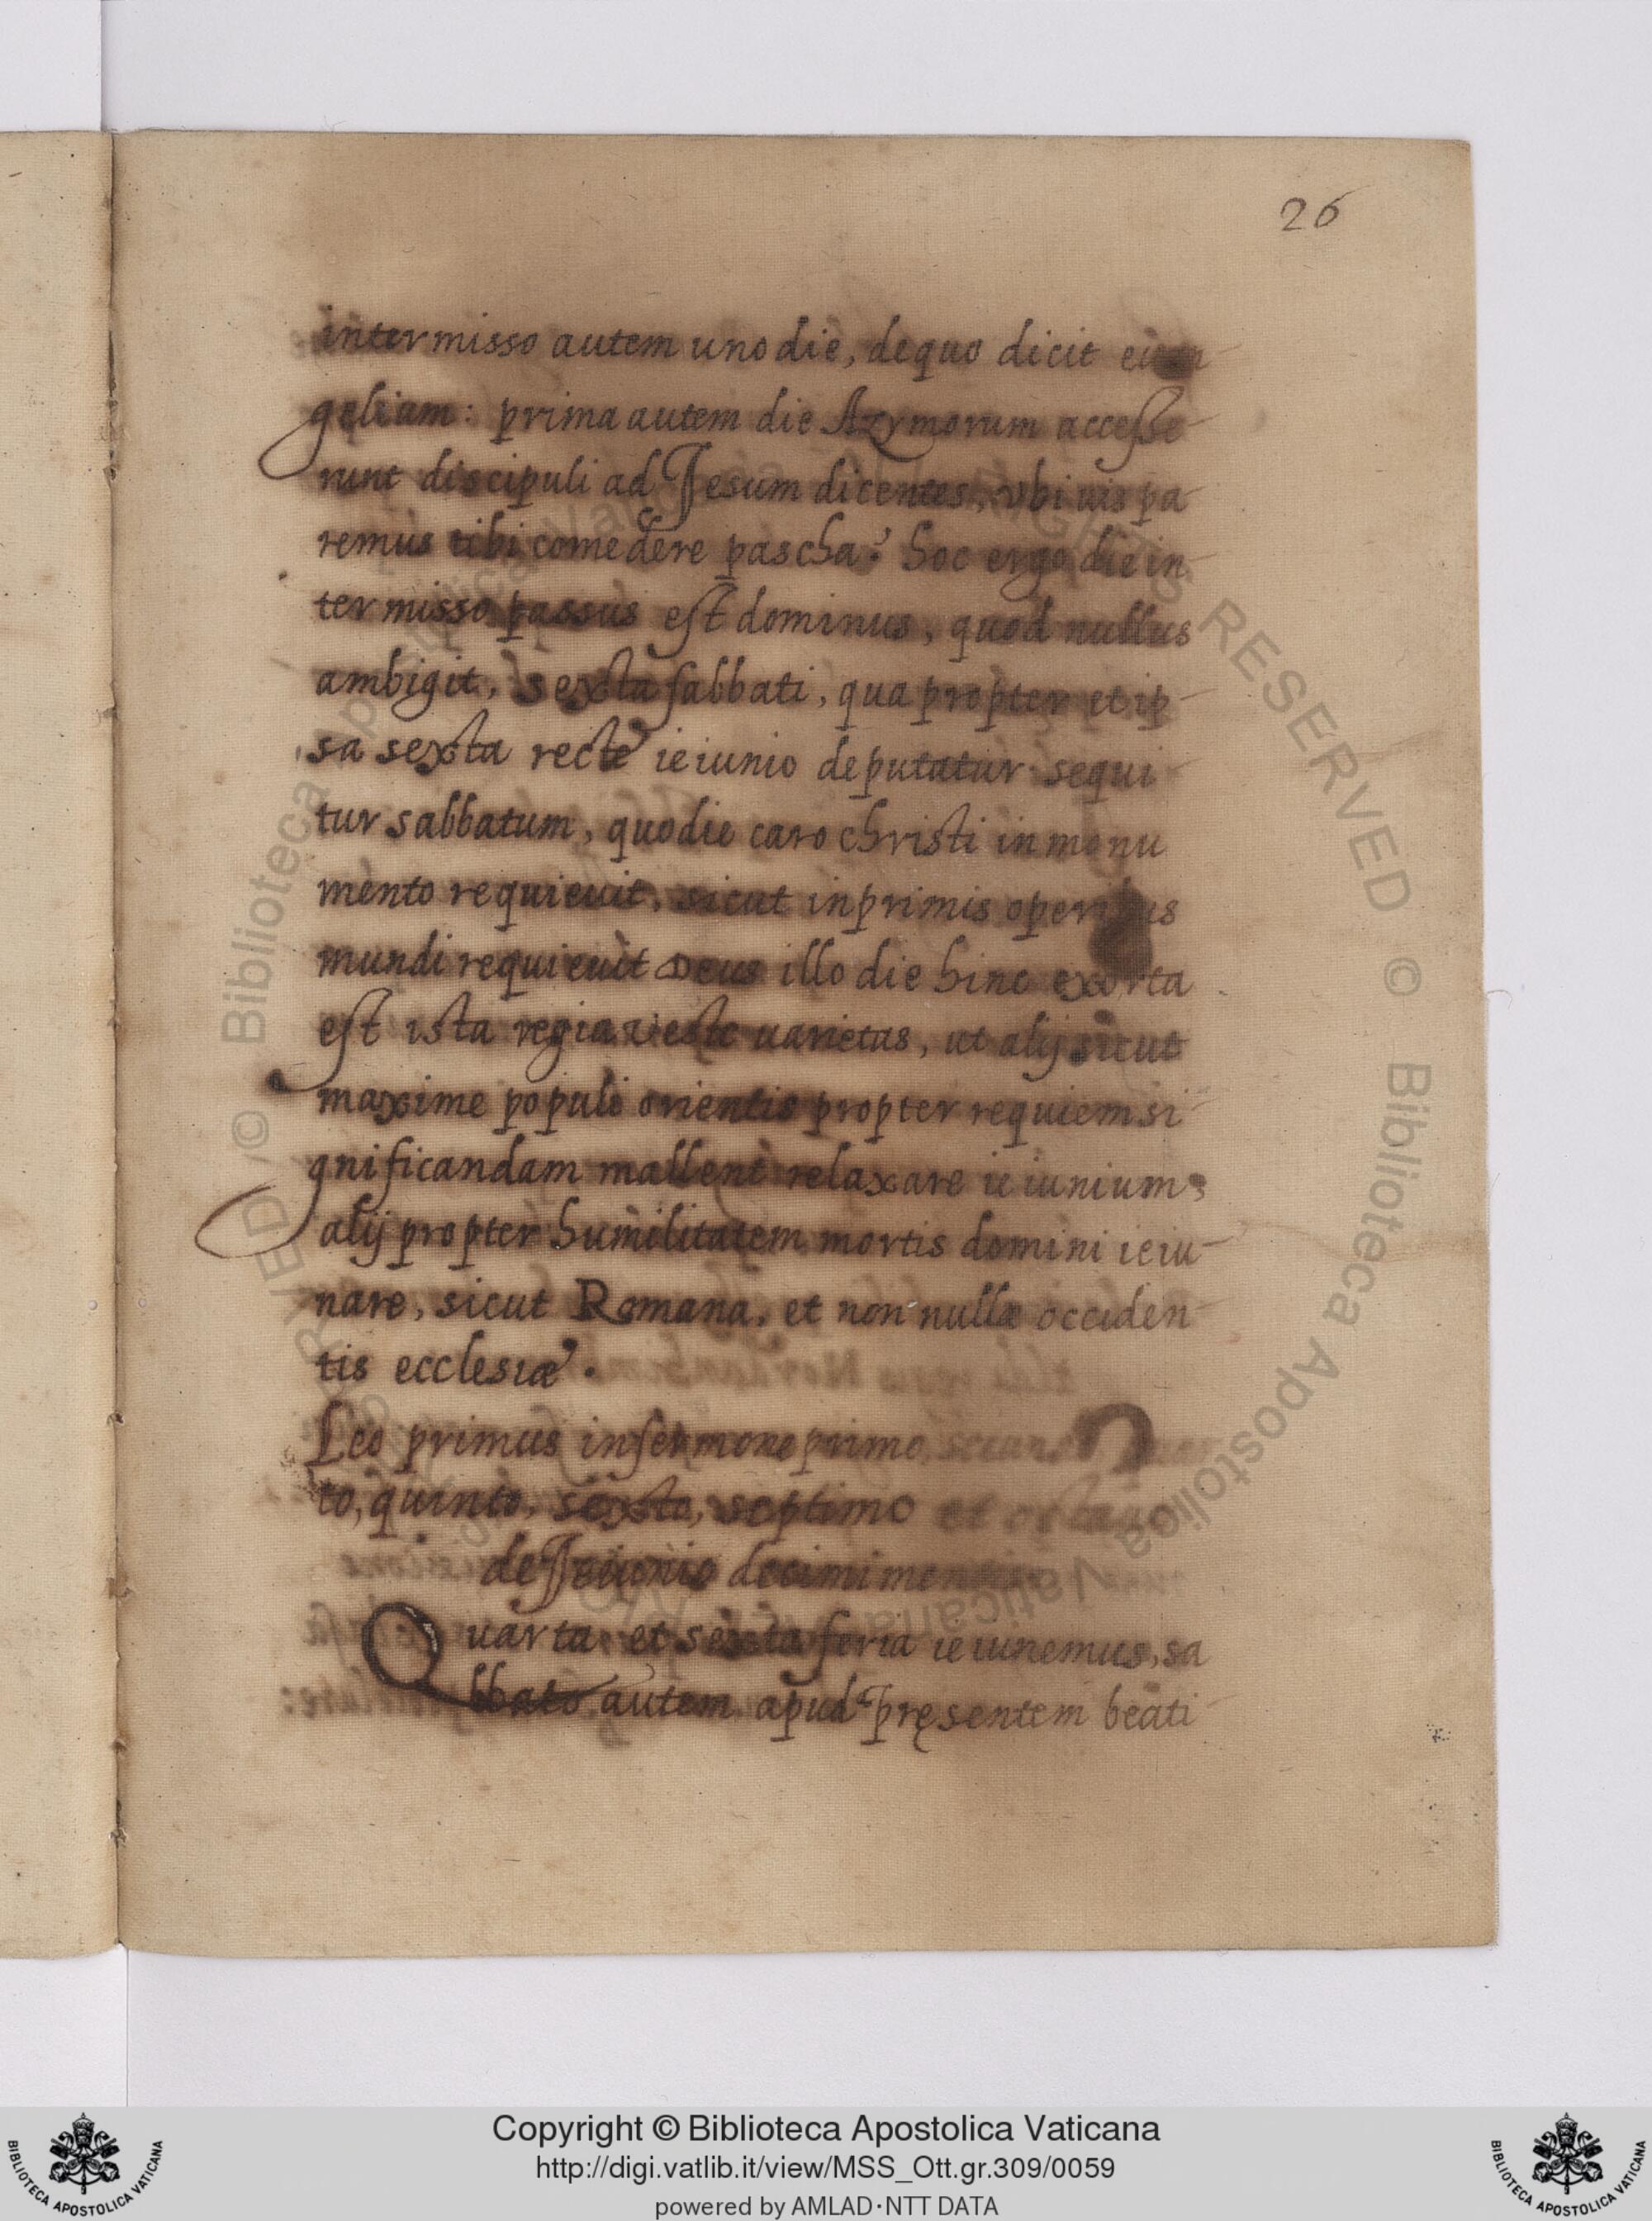 26
intermisso autem uno die, de quo dicit euan-
gelium: prima autem die Azymorum accesse-
runt discipuli ad Iesum dicentes, vbi uis pa-
remus tibi comedere pascha? hoc ergo die in-
termisso passus est dominus, quod nullus
ambigit, sexta sabbati, qua propter et ip-
sa sexta recte ieiunio deputatur sequi-
tur sabbatum, quo die caro christi in monu
mento requieuit, sicut in primis operibus
mundi requieuit Deus illo die hinc exorta
est ista regia ueste uarietas, ut alij sicut
maxime populi orientis propter requiem si-
gnificandam mallent relaxare ieiunium,
alij propter humilitatem mortis domini ieiu-
nare, sicut Romana, et non nullæ occiden-
tis ecclesiæ.
Leo primus in sermone primo,
to, quinto, sexto, septimo et octauo
de Ieiunio decimi mensis
Quarta et sexta feria ieiunemus, sa
bbato autem apud pręsentem beati-
© Biblioteca Apostolica Vaticana ALL RIGHTS RESERVED © Biblioteca Apostolica Vaticana
Copyright © Biblioteca Apostolica Vaticana
http://digi.vatlib.it/view/MSS_Ott.gr.309/0059
powered by AMLAD·NTT DATA
BIBLIOTECA APOSTOLICA VATICANA
BIBLIOTECA APOSTOLICA VATICANA